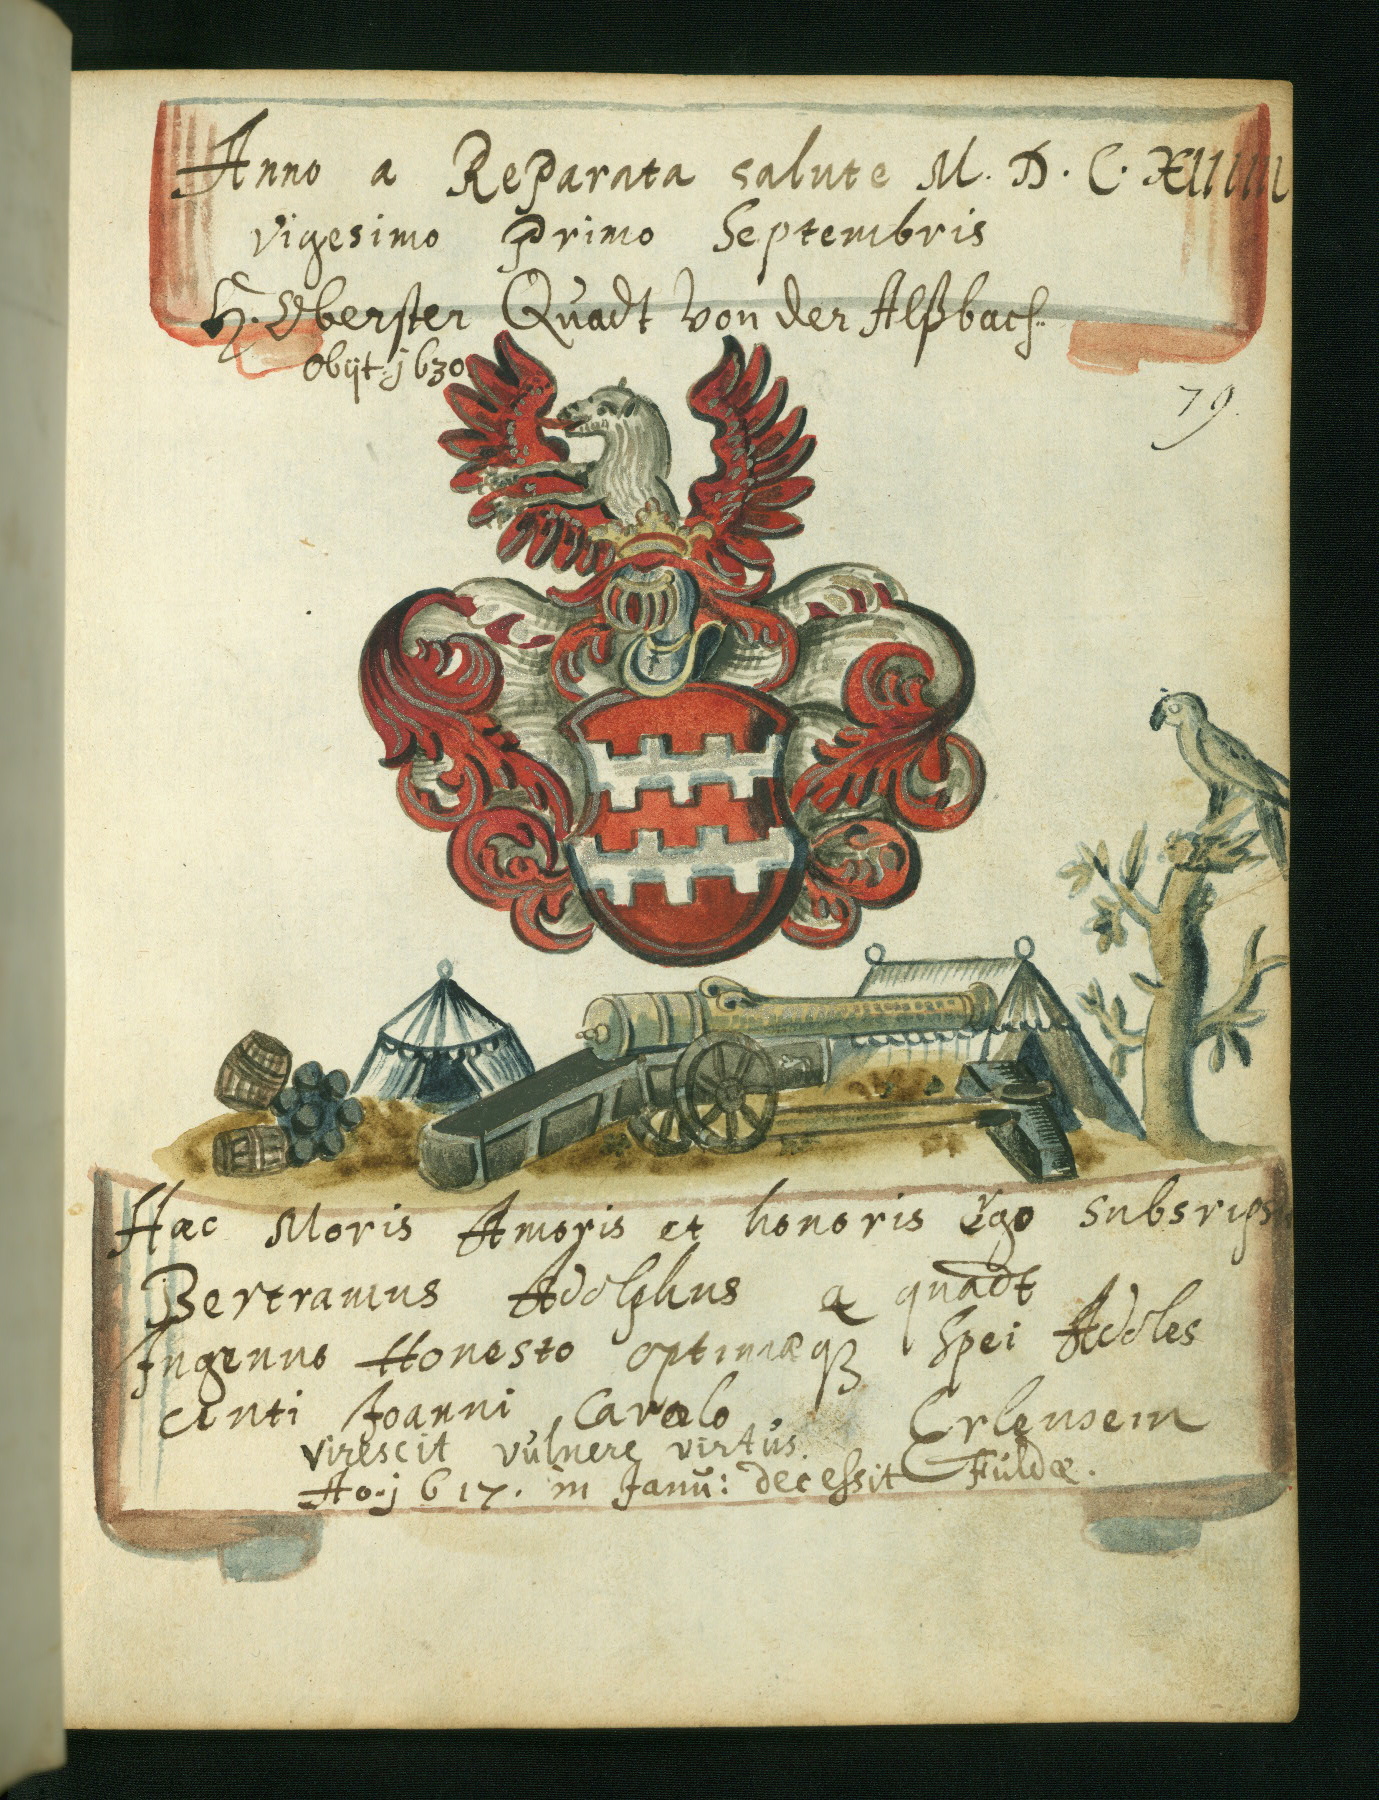 Anno a Reparata salute M. D. C. XIIIII
vigesimo Primo Septembris
H. Oberster Quadt Von der Alßbach.
Obijt. j630.
79.
Hac Moris Amoris et honoris Ergo Subsripsi
Bertramus Adolphus a quadt
Ingenuo Honesto optimæqꝫ Spei Adoles
centi Joanni Carolo Erlensein
virescit vulnere virtus.
Ao. j617. in Janu: decessit Fuldæ.